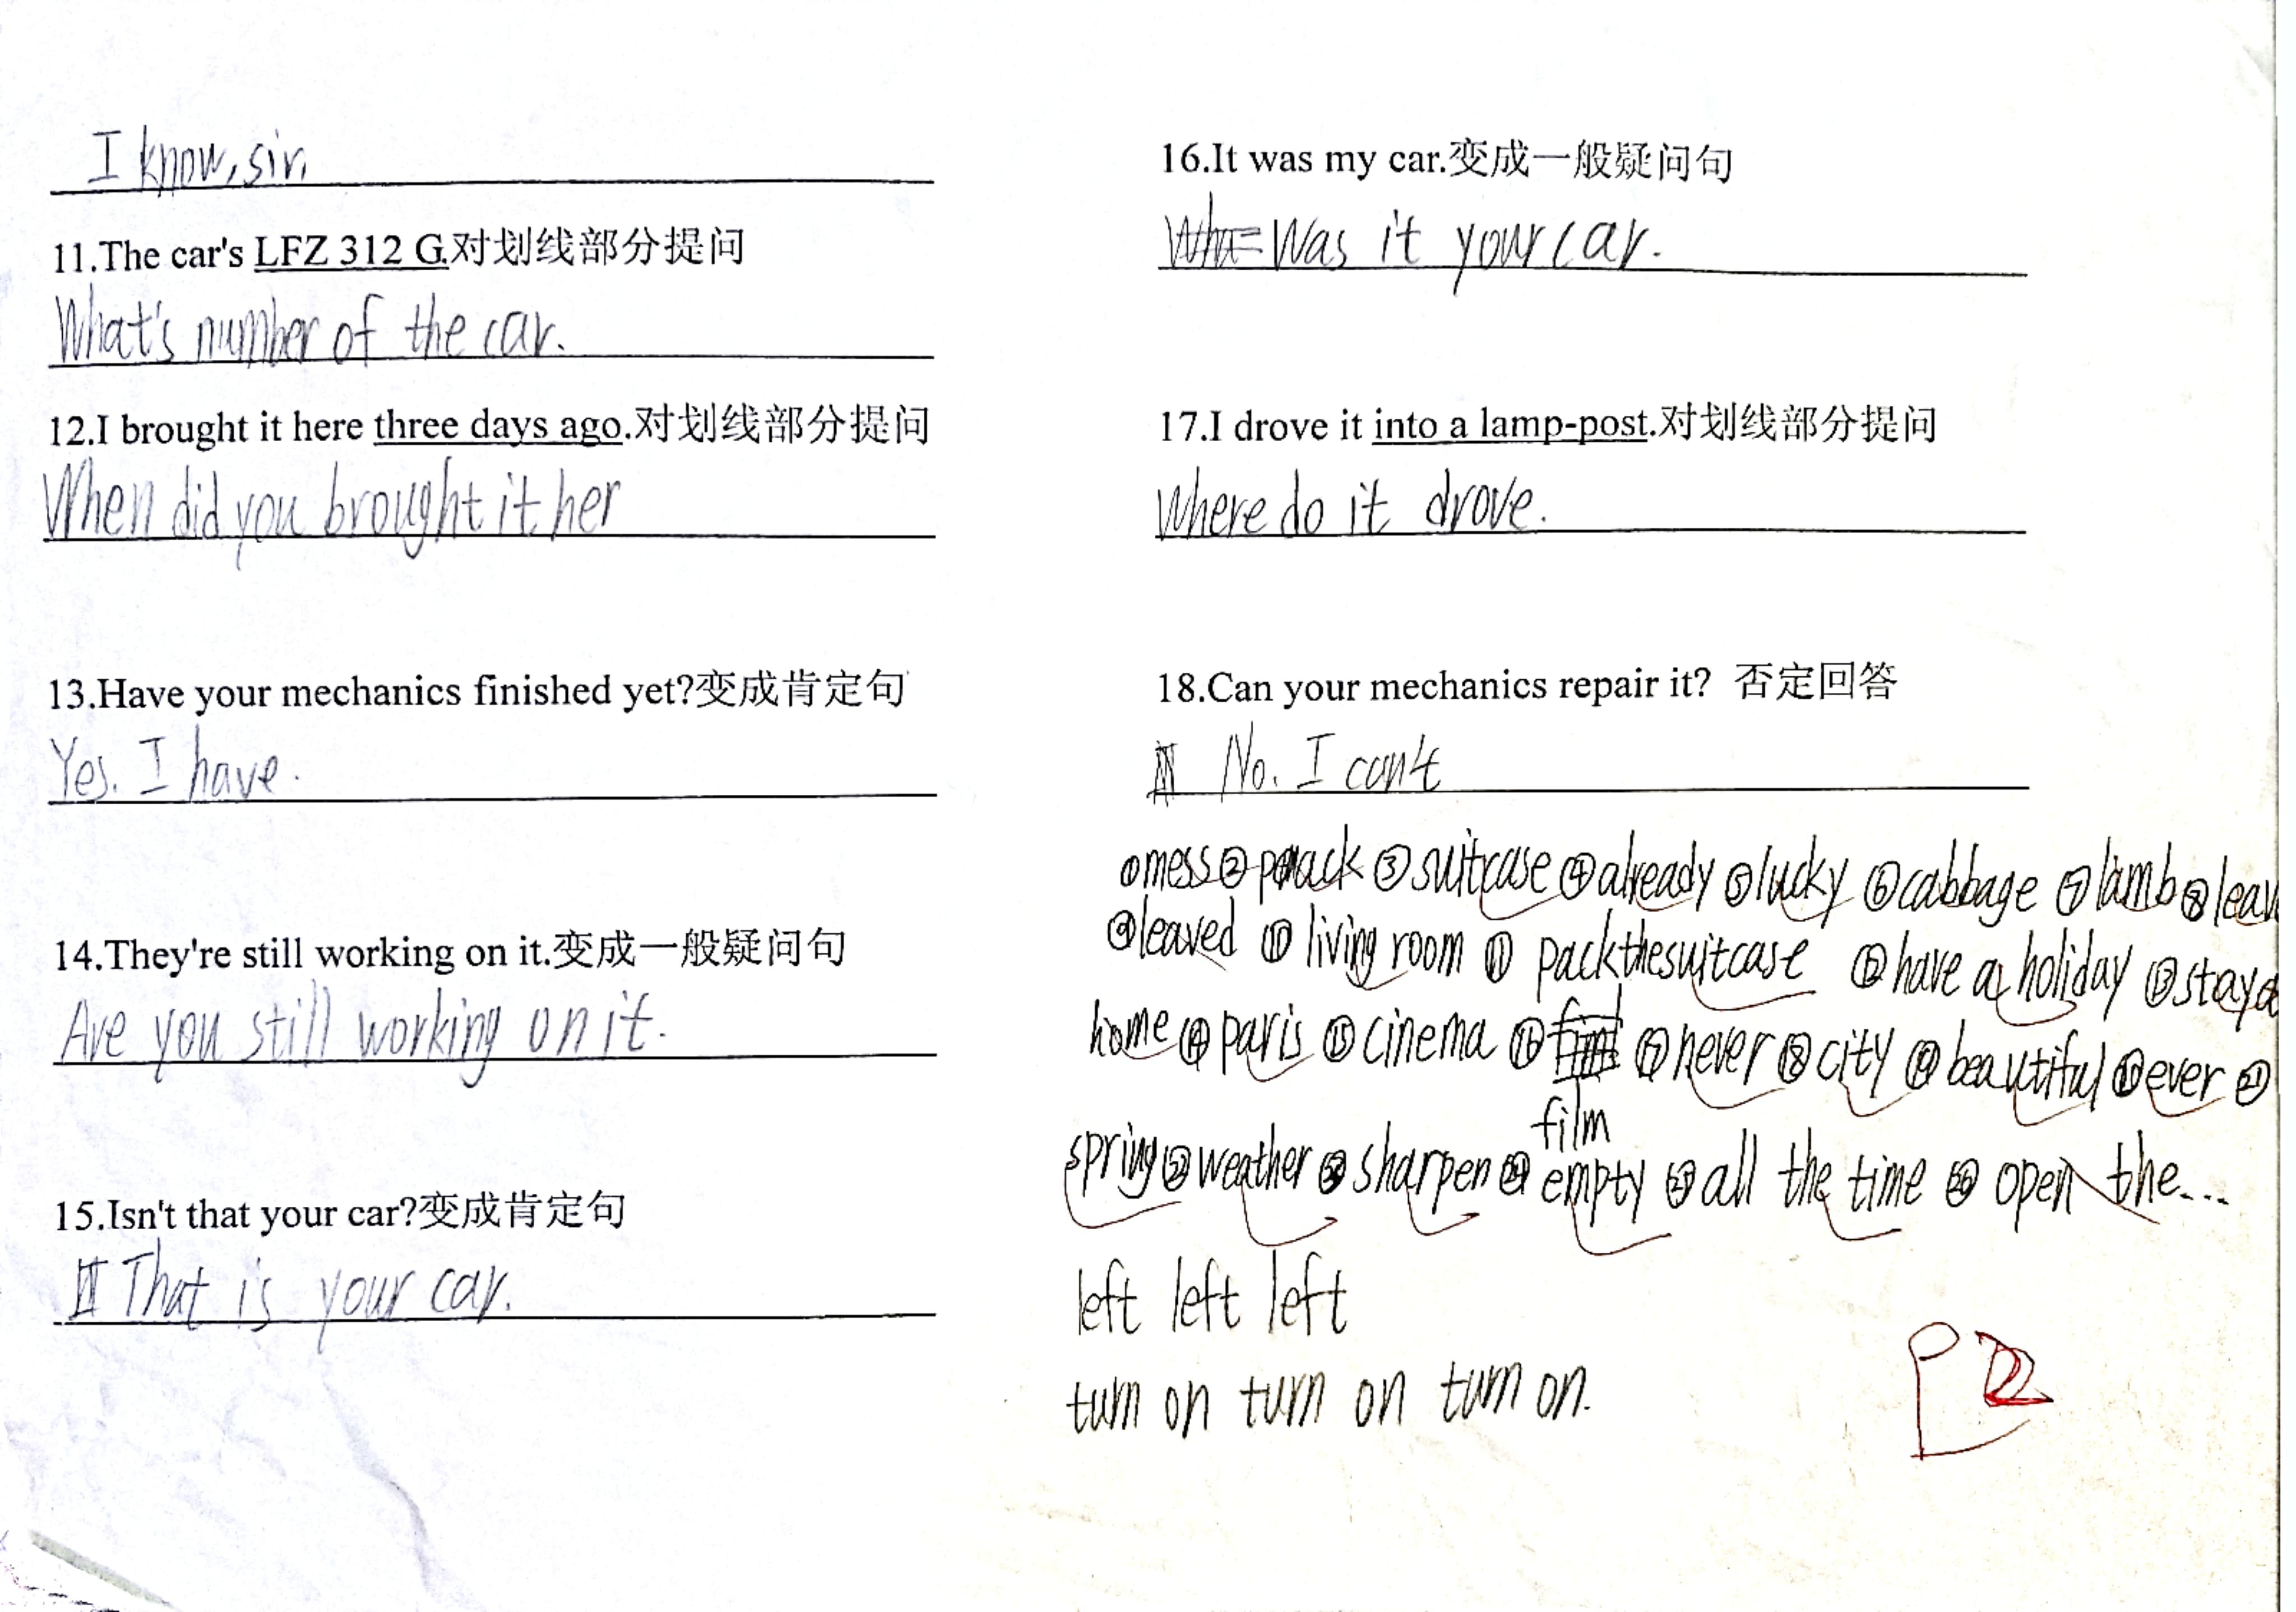 I know, sir.
11.The car's LFZ 312 G.对划线部分提问
What's number of the car.
12.I brought it here three days ago.对划线部分提问
When did you brought it her
13.Have your mechanics finished yet?变成肯定句
Yes. I have.
14.They're still working on it.变成一般疑问句
Are you still working on it.
15.Isn't that your car?变成肯定句
That is your car.
16.It was my car.变成一般疑问句
Was it your car.
17.I drove it into a lamp-post.对划线部分提问
Where do it drove.
18.Can your mechanics repair it? 否定回答
No. I can't
①mess②pack③suitcase④already⑤lucky⑥cabbage⑦lamb⑧leav
⑨leaved ⑩living room ⑪packthesuitcase ⑫have a holiday ⑬stay a
home ⑭paris ⑮cinema ⑯ ⑰never⑱city ⑲beautiful ever ㉑
film
spring㉒weather㉓sharpen㉔empty ㉕all the time ㉖open the...
left left left
turn on turn on turn on.